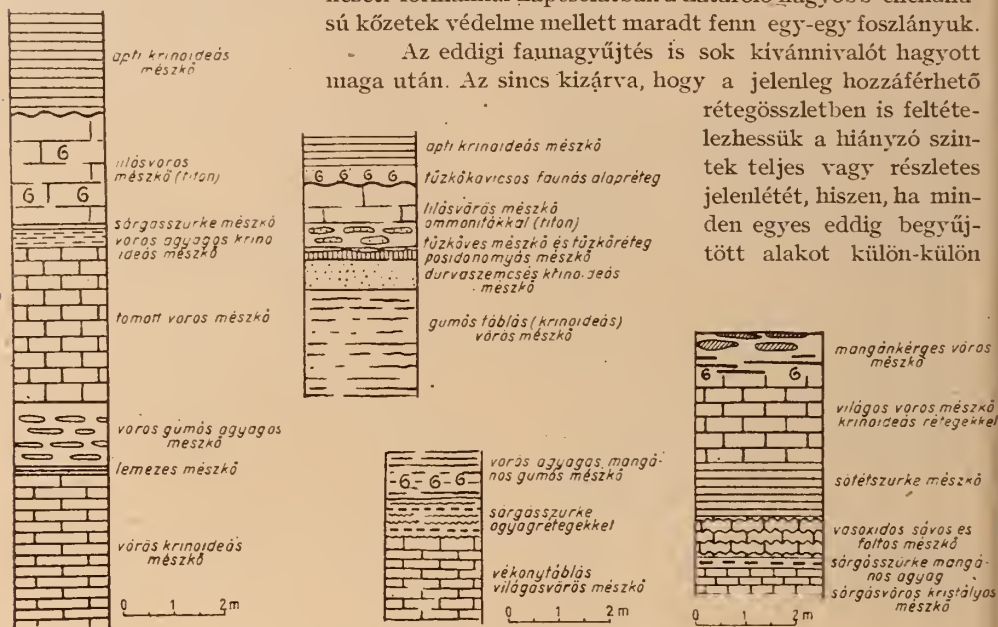 sú kőzetek védelme mellett maradt fenn egy-egy foszlányuk.
Az eddigi faunagyűjtés is sok kívánnivalót hagyott
maga után. Az sincs kizárva, hogy a jelenleg hozzáférhető
rétegösszletben is feltéte-
lezhessük a hiányzó szin-
tek teljes vagy részletes
jelenlétét, hiszen, ha min-
den egyes eddig begyűj-
tött alakot külön-külön
apti krinoideás
mészkő
G
lilásvörös
mészkő (titon)
G G
sárgásszürke mészkő
vörös agyagos krino
ideás mészkő
tömött vörös mészkő
vörös gumós agyagos
mészkő
lemezes mészkő
vörös krinoideás
mészkő
0 1 2 m
apti krinoideás mészkő
G G G G
tűzkőkavicsos faunás alapréteg
lilásvörös mészkő
ammonitákkal (titon)
tűzköves mészkő és tűzkőréteg
posidonomyás mészkő
durvaszemcsés krinoideás
mészkő
gumós táblás (krinoideás)
vörös mészkő
vörös agyagos mangá-
nos gumós mészkő
G G G
sárgásszürke
agyagrétegekkel
vékonytáblás
világosvörös mészkő
0 1 2 m
mangánkérges vörös
mészkő
G G
világos vörös mészkő
krinoideás rétegekkel
sötétszürke mészkő
vasoxidos sávos es
foltos mészkő
sárgásszürke mangá-
nos agyag
sárgásvörös kristályos
mészkő
0 1 2 m